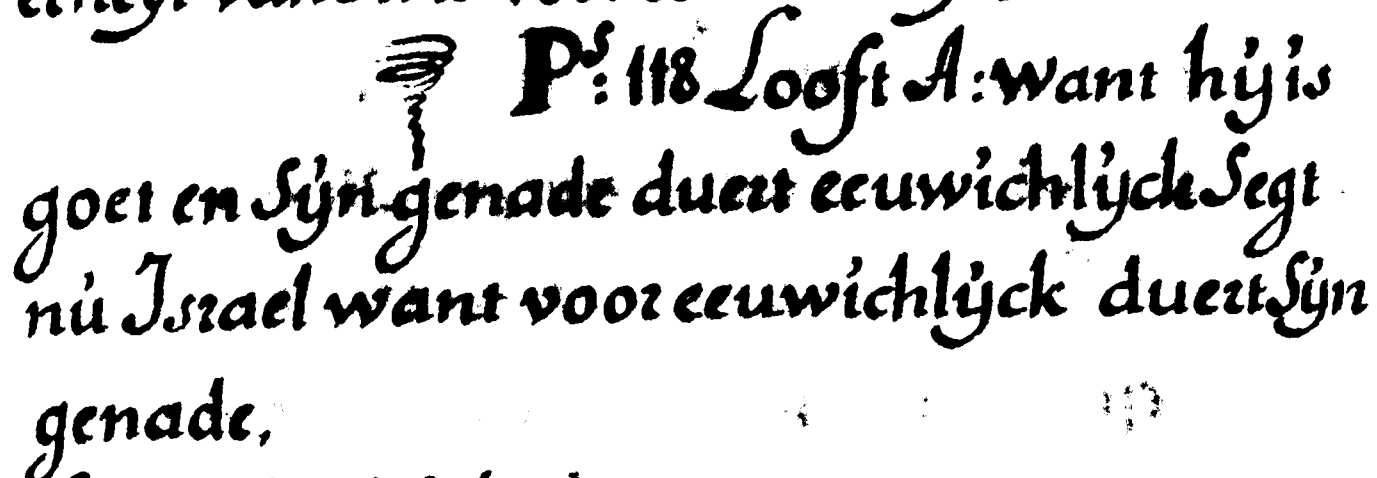 Ps: 118 Looft A: want hij is
goet en Sijn genade duert eeuwichlijck Segt
nu Israel want voor eeuwichlijck duert Sijn
genade,